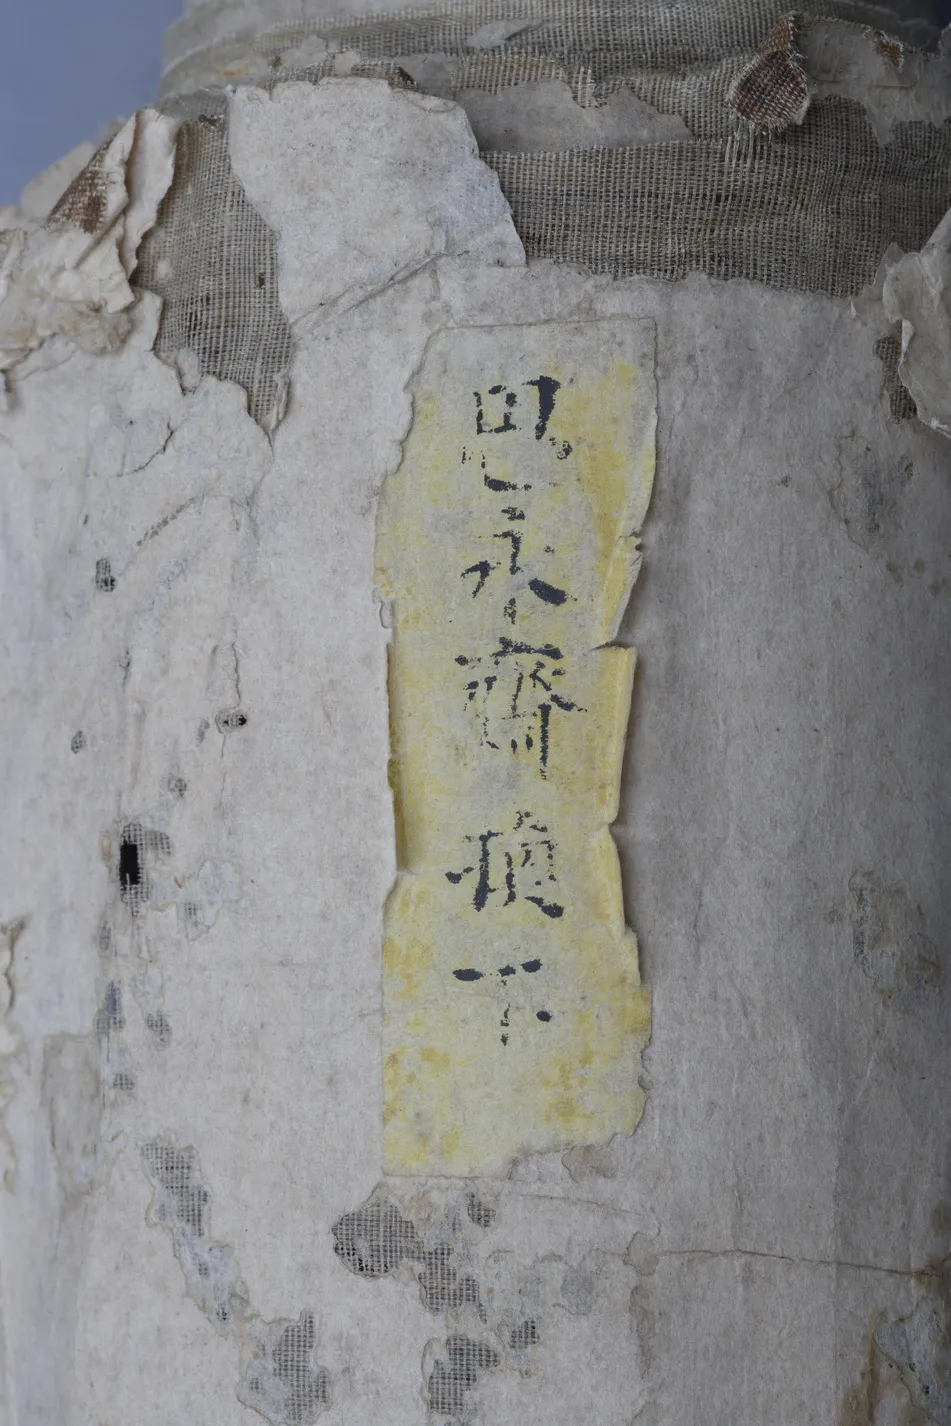 思永齋換下